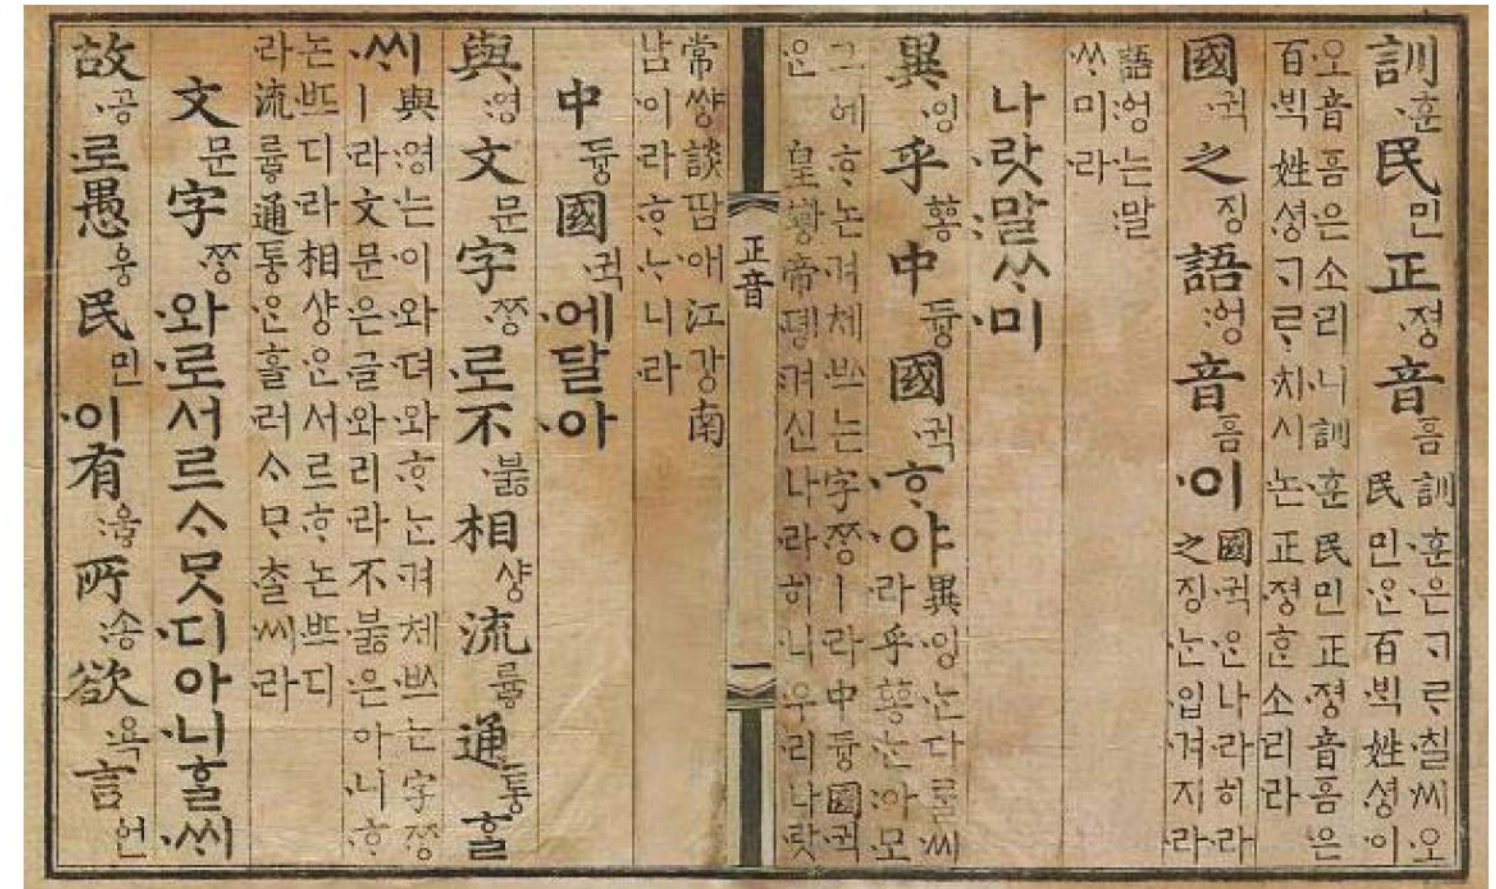 訓·훈民민正·졍音ᅙᅳᆷ
訓·훈·은ᄀᆞᄅᆞ·칠·씨·오
民민·ᄋᆞᆫ百·ᄇᆡᆨ姓·셩·이
·오音ᅙᅳᆷ·은소·리·니訓·훈民민正·졍音ᅙᅳᆷ·은
百·ᄇᆡᆨ姓·셩ᄀᆞᄅᆞ·치시·논正·졍ᄒᆞᆫ소·리·라
國·귁之징語:ᅌᅥᆼ音ᅙᅳᆷ·이
國·귁·ᄋᆞᆫ나·라히·라
之징·ᄂᆞᆫ·입·겨지·라
語:ᅌᅥᆼ·는:말
ᄊᆞ·미·라
나·랏:말ᄊᆞ·미
異·잉乎ᅘᅩᆼ中듀ᇰ國·귁·ᄒᆞ·야
異·잉·ᄂᆞᆫ다ᄅᆞᆯ·씨
·라乎ᅘᅩᆼ·ᄂᆞᆫ:아·모
그ᅌᅦ·ᄒᆞ·논·겨체·ᄡᅳ는字·ᄍᆞᆼㅣ·라中듀ᇰ國·귁
·ᄋᆞᆫ皇ᅘᅪᇰ帝·뎽:겨신나·라히·니우·리나·랏
正音
一
常썅談땀·애江강南
남·이·라·ᄒᆞ·ᄂᆞ니·라
中듀ᇰ國·귁·에달·아
與:영文문字·ᄍᆞᆼ·로不·부ᇙ相샤ᇰ流류ᇢ通토ᇰᄒᆞᆯ
·ᄊᆡ
與:영·는·이·와·뎌·와·ᄒᆞ·ᄂᆞᆫ·겨체·ᄡᅳ는字·ᄍᆞᆼ
ㅣ·라文문·은·글·와리·라不·부ᇙ·은아·니·ᄒᆞ
논·ᄠᅳ디·라相샤ᇰ·ᄋᆞᆫ서르·ᄒᆞ논·ᄠᅳ디
·라流류ᇢ通토ᇰ·ᄋᆞᆫ흘·러ᄉᆞᄆᆞ·ᄎᆞᆯ·씨·라
文문字·ᄍᆞᆼ·와·로서르ᄉᆞᄆᆞᆺ·디아·니ᄒᆞᆯ·ᄊᆡ
故·공·로愚ᅌᅮᆼ民민·이有:우ᇢ所:송欲·욕言언